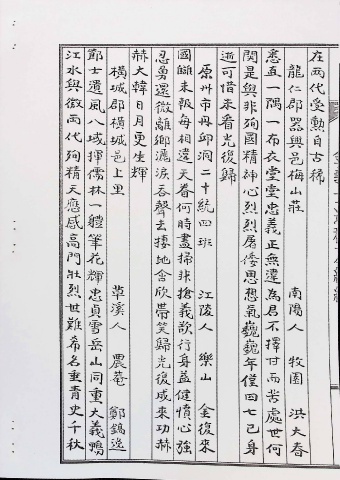 在兩代受勳自古稀
龍仁郡器興邑梅山莊 南陽人 牧園 洪大春
悉直一隅一布衣堂堂忠義正無違為君不擇甘而苦處世何
関是與非殉國精神心烈烈屠倭思想氣巍巍年僅四七已身
逝可惜未看光復歸
原州市丹邱洞二十統四班 江陵人 樂山 金復來
國讎未報每相違天眷何時盡掃非搶義欲行身益健憤心強
忍勇還微離鄉灑淚吞聲去接地含欣帶笑歸光復成來功赫
赫大韓日月更生輝
橫城郡橫城邑上里 草溪人 農菴 鄭錫逸
節士遺風八域揮儒林一軆筆花輝忠貞雪岳山同重大義鴨
江水與徽兩代殉精天應感高門壯烈世難希名垂青史千秋